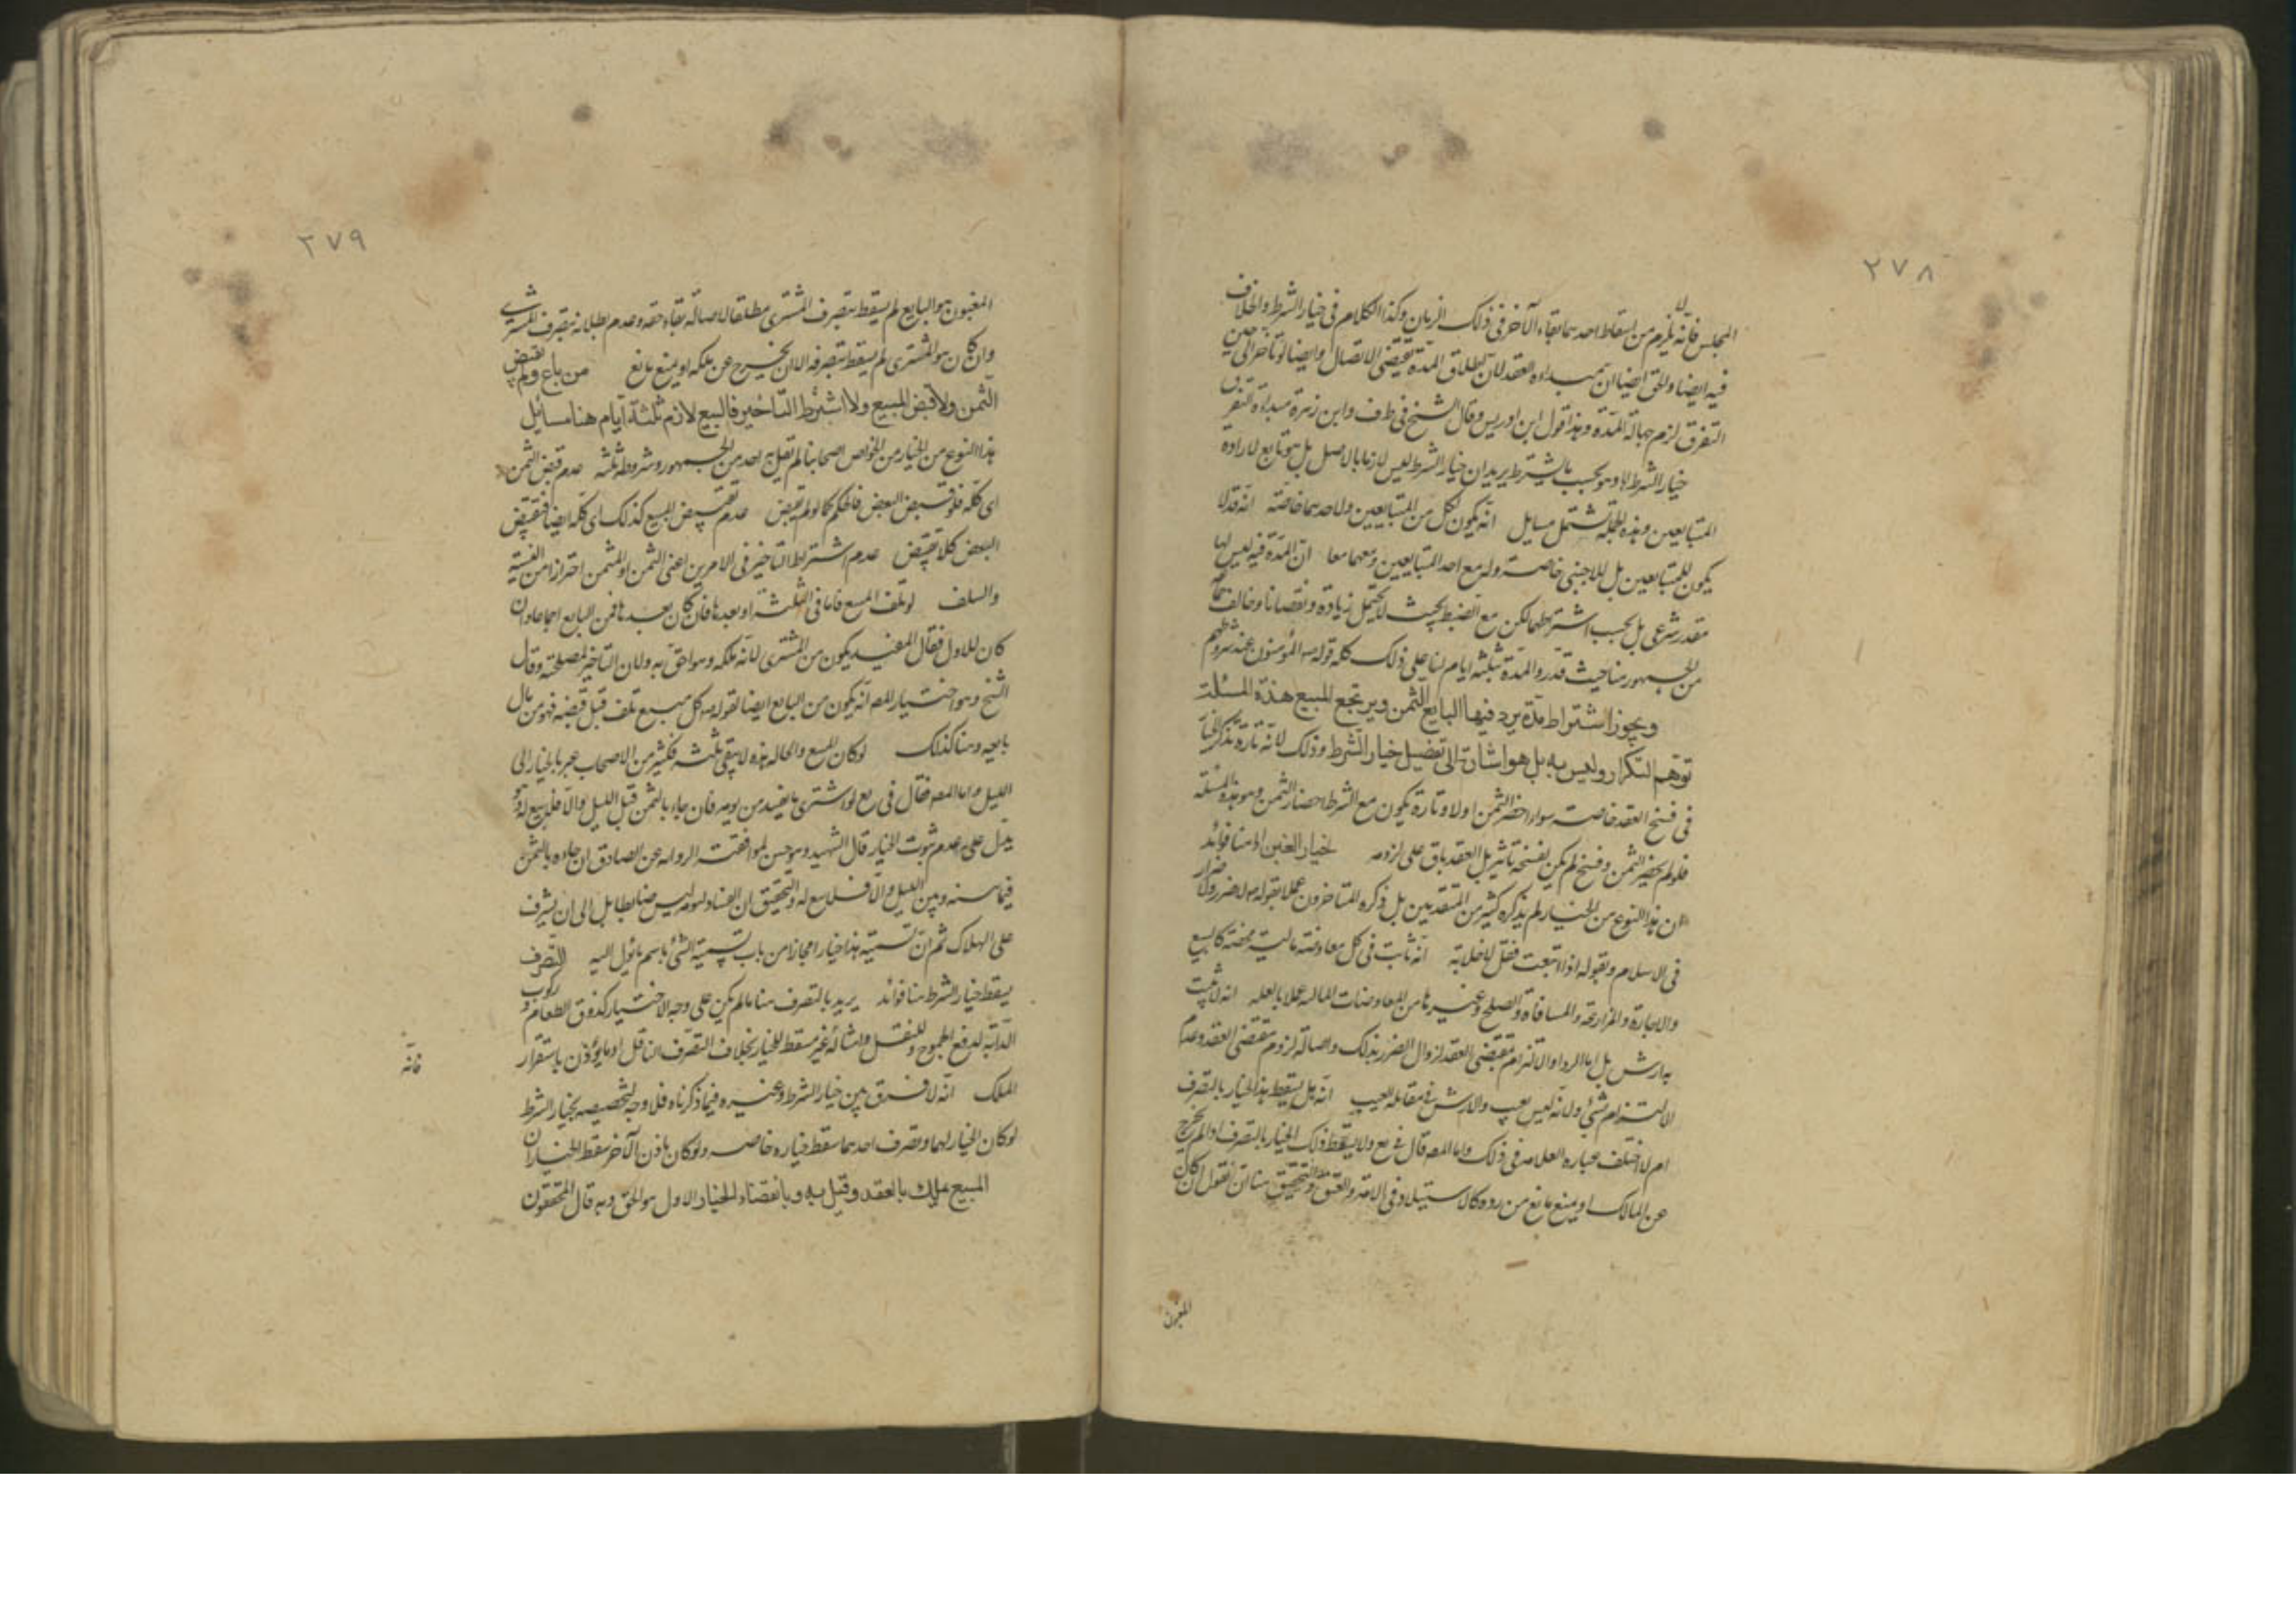 ٢٧٨
المجلس فانه لا يلزم من اسقاط احدهما بقاء الآخر فى ذلك الزمان وكذا الكلام فى خيار الشرط والخلاف
فيه ايضا والحق ايضا ان مبداءه العقد لان اطلاق المدة يقتضى الاتصال وايضا لو تأخر الى حين
التفرق لزم جهالة المدة وهذا قول ابن ادريس وقال الشيخ فى ط وف وابن زهرة مبداءه التفرق
خيار الشرط وهو بحسب ما يشترط يريد ان خيار الشرط ليس لازما بالاصل بل هو تابع لارادة
المتبايعين وهذه الجملة تشتمل مسايل انه يكون لكل من المتبايعين ولاحدهما خاصة انه قد لا
يكون للمتبايعين بل للاجنبى خاصة وله مع احد المتبايعين ومعهما معا ان المدة فيه ليس لها
مقدر شرعى بل بحسب اشتراطهما لكن مع الضبط بحيث لا يحتمل زيادة ونقصانا وخالف
من الجمهور هنا حيث قدروا المدة بثلثة ايام لنا على ذلك كله قوله المؤمنون عند شروطهم
ويجوز اشتراط مدة يرد فيها البايع الثمن ويرتجع المبيع هذه المسئلة
توهم التكرار وليس به بل هو اشارة الى تفصيل خيار الشرط وذلك لانه تارة يذكر الخيار
فى فسخ العقد خاصة سواء احضر الثمن اولا وتارة يكون مع الشرط احضار الثمن وهو هذه المسئلة
فلو لم يحضر الثمن وفسخ لم يكن لفسخه تأثير بل العقد باق على لزومه خيار الغبن هنا فوائد
ان هذا النوع من الخيار لم يذكره كثير من المتقدمين بل ذكره المتاخرون عملا بقوله لا ضرر ولا ضرار
فى الاسلام وبقوله اذا ابتعت فقل لا خلابة انه ثابت فى كل معاوضة مالية محضة كالبيع
والاجارة والمزارعة والمساقاة والصلح وغيرها من المعاوضات المالية عملا بالعلة انه لا يثبت
به ارش بل اما الرد او الالتزام بمقتضى العقد لزوال الضرر بذلك واصالة لزوم مقتضى العقد وعدم
الالتزام بشئ ولانه ليس بعيب والارش فى مقابلة العيب انه هل يسقط هذا الخيار بالتصرف
ام لا اختلف عبارة العلامة فى ذلك واما المص قال فى يع ولا يسقط ذلك الخيار بالتصرف اذا لم يخرج
عن المالك او يمنع مانع من رده كالاستيلاد فى الامة والعتق والتحقيق هنا ان نقول ان كان
المغبون
٢٧٩
المغبون هو البايع لم يسقط بتصرف المشترى مطلقا لاصالة بقاء حقه وعدم بطلانه بتصرف المشترى
وان كان هو المشترى لم يسقط بتصرفه الا ان يخرج عن ملكه او يمنع مانع من باع ولم يقبض
الثمن ولا قبض المبيع ولا اشترط التاخير فالبيع لازم ثلثة ايام هنا مسايل
هذا النوع من الخيار من خواص اصحابنا لم تقل به احد من الجمهور وشروطه ثلثة عدم قبض الثمن
اى كله فلو قبض البعض فالحكم كما لو لم يقبض عدم تقبيض المبيع كذلك اى كله ايضا فتقبيض
البعض كلا تقبيض عدم اشتراط التاخير فى الامرين اعنى الثمن او المثمن احترازا من النسية
والسلف لو تلف المبيع فاما فى الثلثة او بعدها فان كان بعدها فمن البايع اجماعا وان
كان للاول فقال المفيد يكون من المشترى لانه ملكه وهو احق به ولان التاخير لمصلحته وقال
الشيخ وهو اختيار المص انه يكون من البايع ايضا لقوله كل مبيع تلف قبل قبضه فهو من مال
بايعه وهنا كذلك لو كان المبيع والحالة هذه لا يبقى ثلثة فكثير من الاصحاب عبر بالخيار الى
الليل واما المص فقال فى يع لو اشترى ما يفسد من يومه فان جاء بالثمن قبل الليل والا فلا بيع له وهو
يدل على عدم ثبوت الخيار قال الشهيد وهو حسن لموافقته الرواية عن الصادق ان جاءه بالثمن
فيما بينه وبين الليل والا فلا بيع له والتحقيق ان الفساد ليومه ليس ضابطا بل الى ان يشرف
على الهلاك ثم ان تسمية هذا خيارا مجازا من باب تسمية الشئ باسم ما يؤل اليه التصرف
يسقط خيار الشرط هنا فوائد يريد بالتصرف هنا ما لم يكن على وجه الاختبار كذوق الطعام وركوب
الدابة لدفع الجموح وللنقل وامثاله غير مسقط للخيار بخلاف التصرف الناقل او ما يؤذن باستقرار
الملك انه لا فرق بين خيار الشرط وغيره فيما ذكرناه فلا وجه لتخصيصه بخيار الشرط
لو كان الخيار لهما وتصرف احدهما سقط خياره خاصة ولو كان باذن الآخر سقط الخياران
المبيع يملك بالعقد وقيل به وبانقضاء الخيار الاول هو الحق وبه قال المحققون
فانه